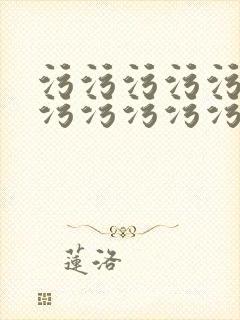 污污污污污
污污污污污
蓮洛